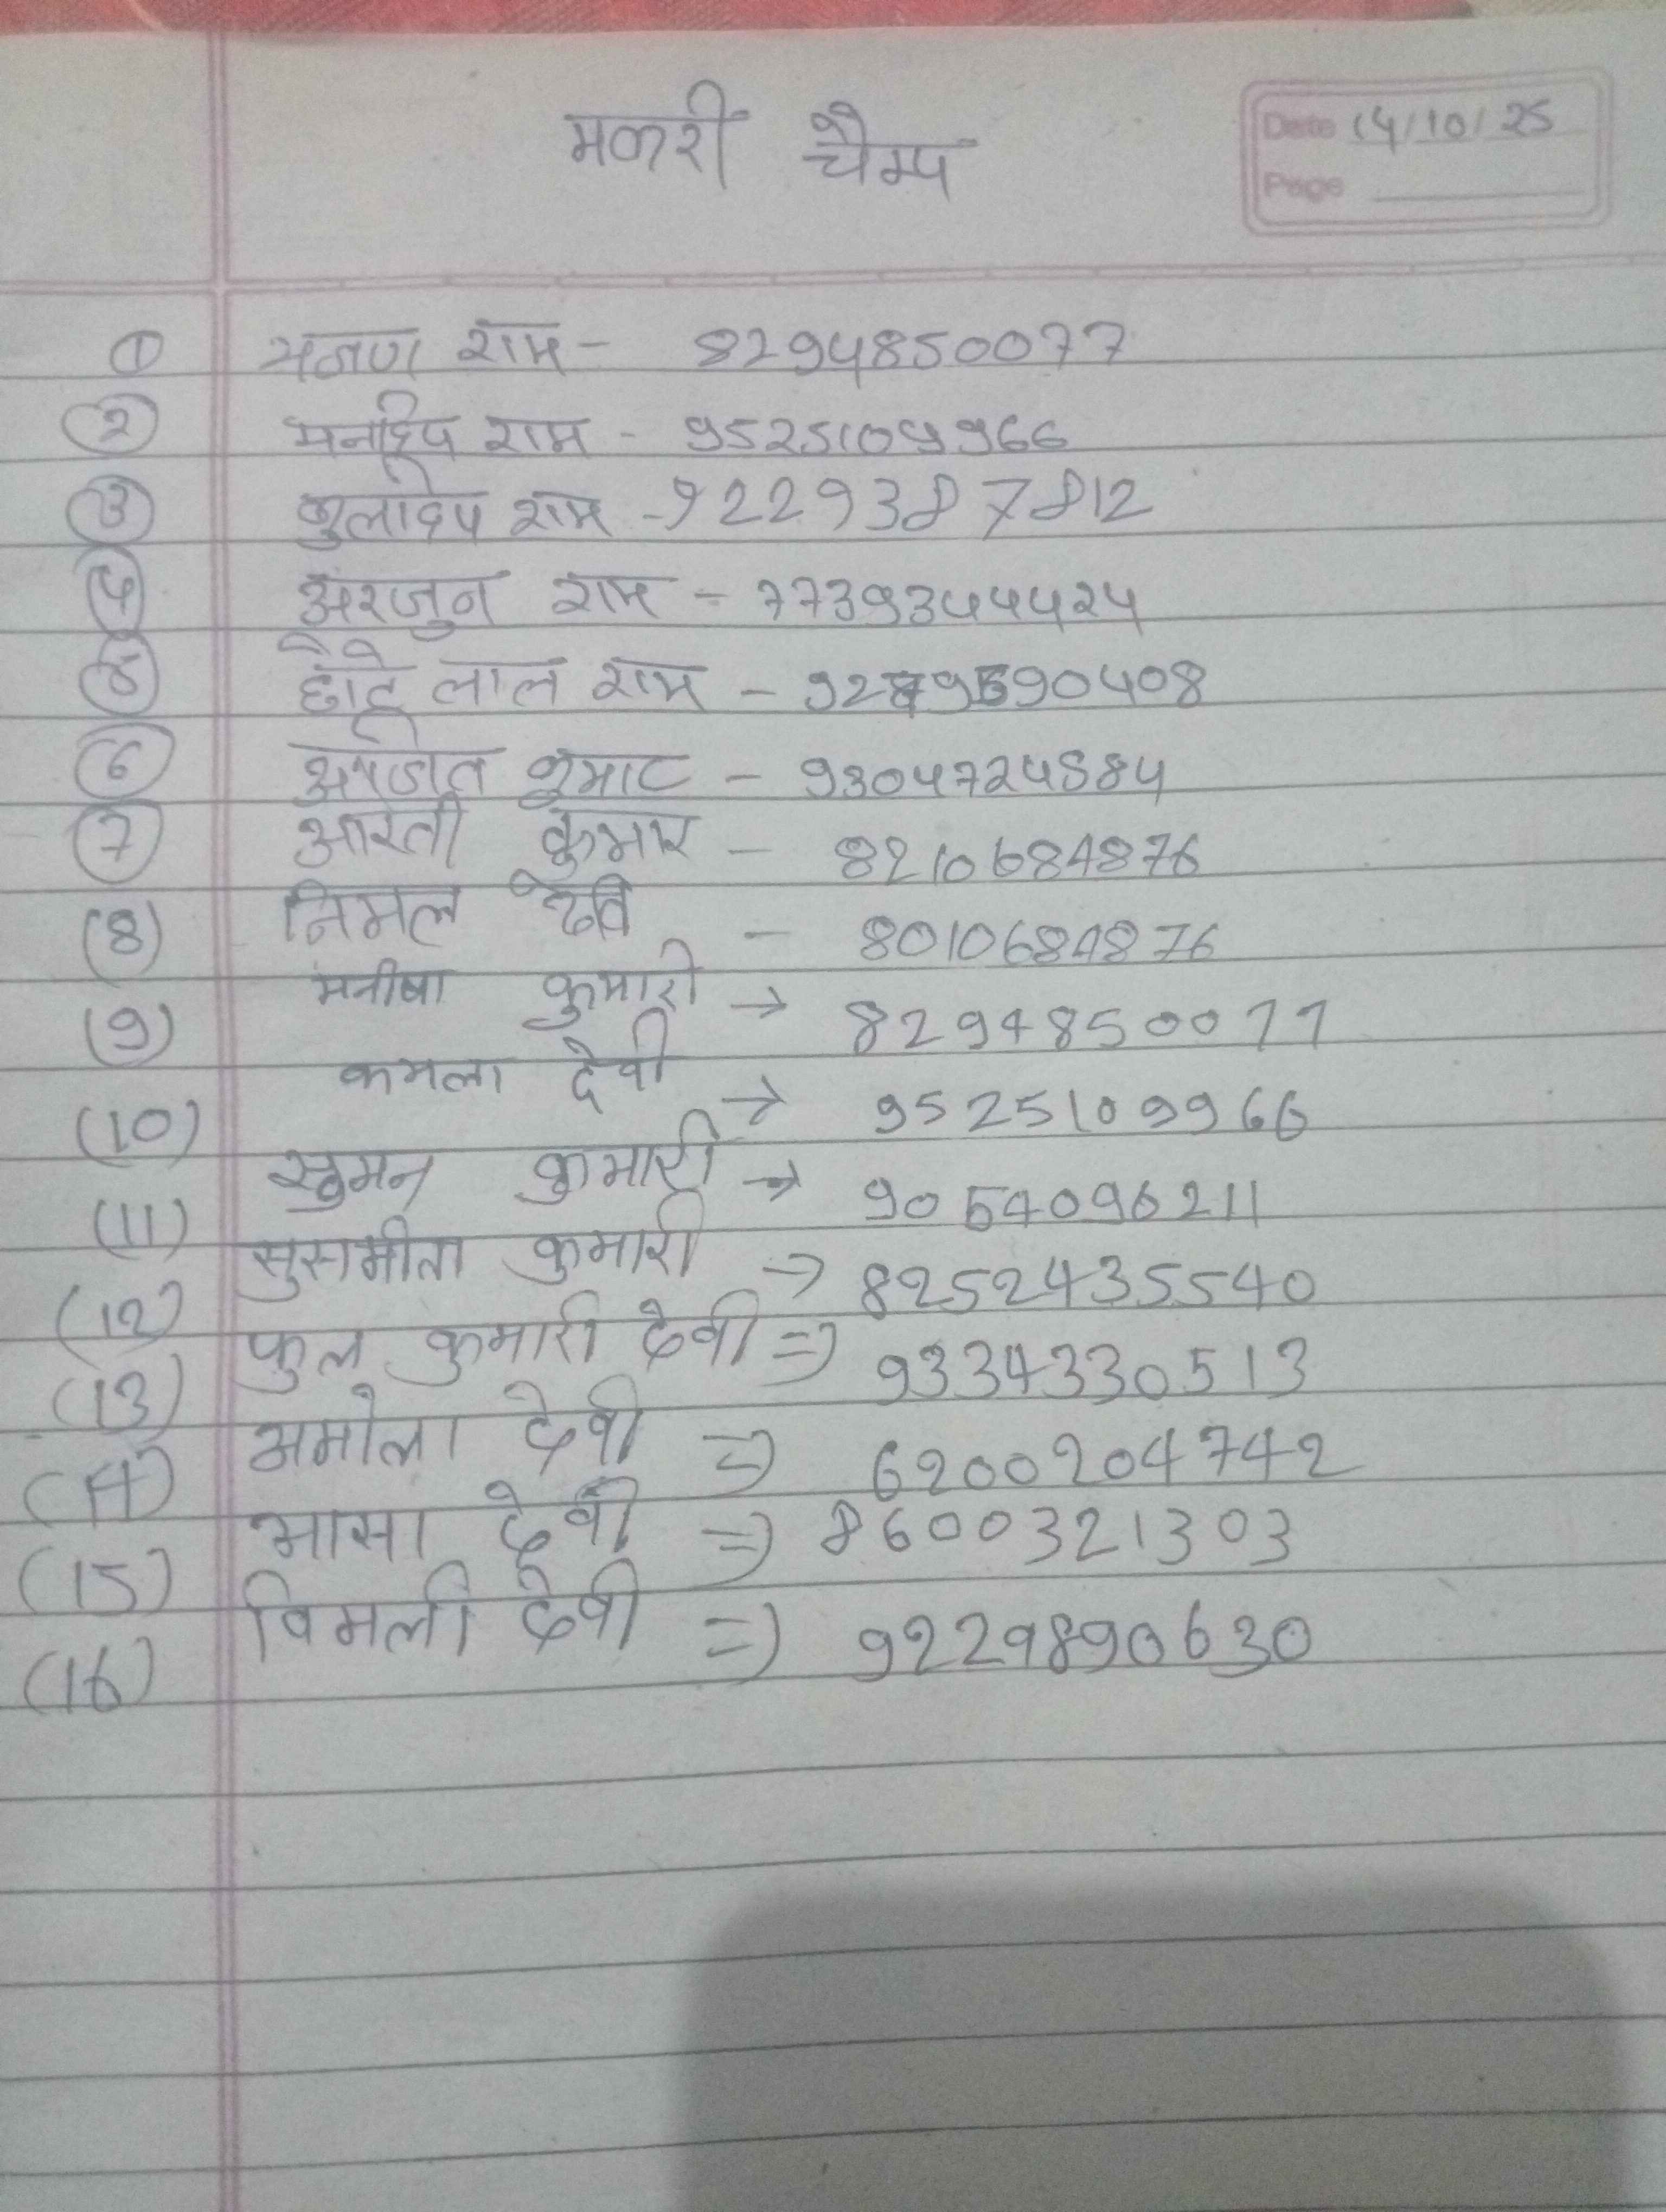 मकरी चैम्प
Date 14/10/25
Page
① भजण राम - 8294850077
② मनदिप राम - 9525109966
③ कुलदिप राम - 9229387812
④ अरजुन राम - 7739344424
⑤ छोटे लाल राम -
⑥ कुमार - 9304724584
⑦ आरती कुमार - 8210684876
(8) निमल देवि - 8010684876
(9) मनीषा कुमारी → 8294850077
(10) कमला देवी → 9525109966
(11) सुमन कुमारी → 9054096211
(12) सुसमीता कुमारी → 8252435540
(13) फुल कुमारी देवी => 9334330513
(14) अमोला देवी => 6200204742
(15) भासा देवी => 8600321303
(16) विमली देवी => 9229890630